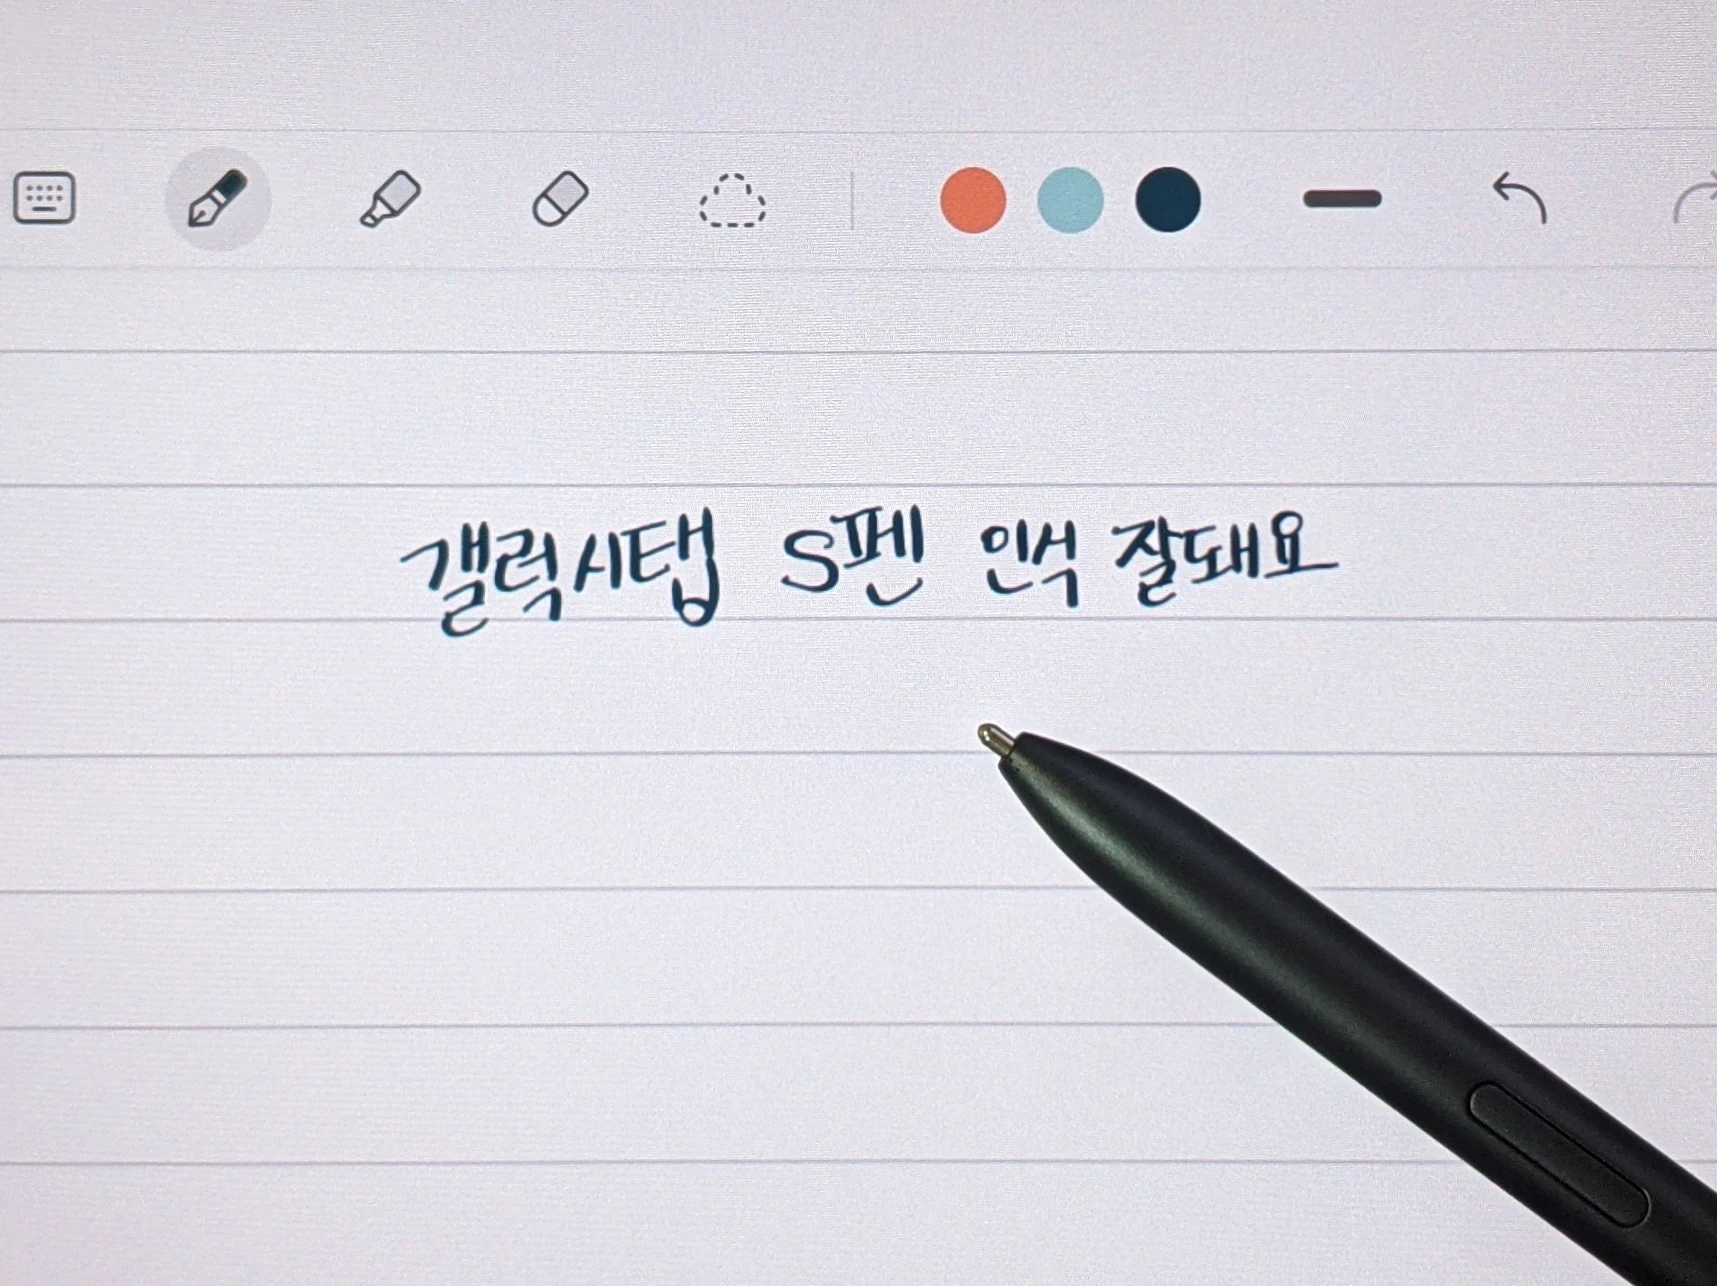 갤럭시탭 S펜 인식 잘돼요